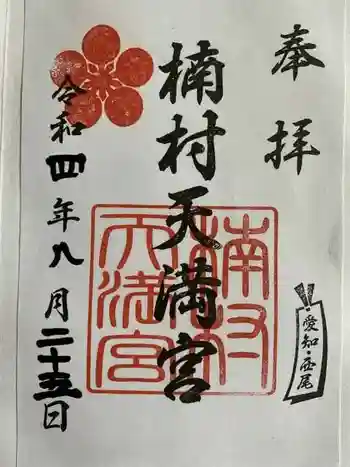 奉拝
愛知・西尾
楠村天満宮
楠村
天満宮
令和四年八月二十五日